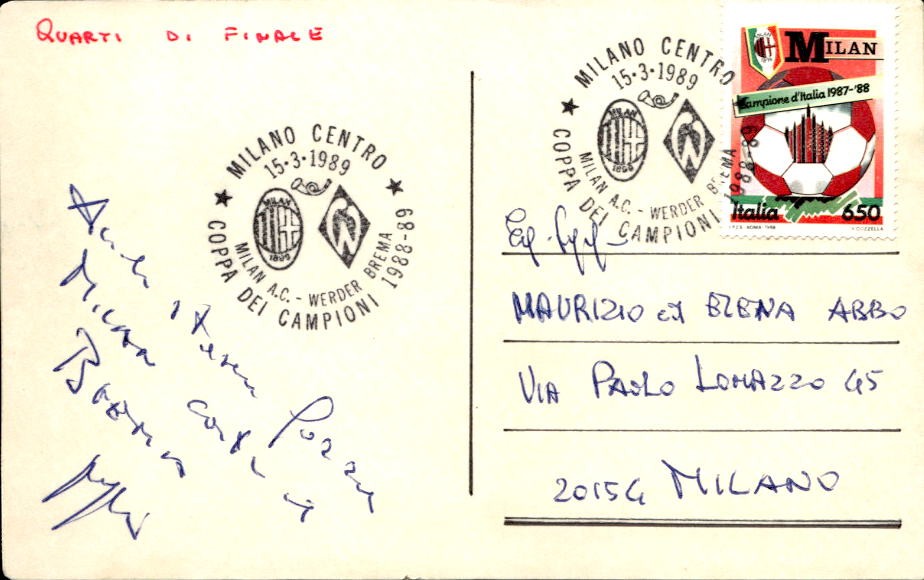 QUARTI DI FINALE
MILANO CENTRO
15-3-1989
MILAN
1899
MILAN A.C. - WERDER BREMA
COPPA DEI CAMPIONI 1988-89
MILANO CENTRO
15-3-1989
MILAN
1899
MILAN A.C. - WERDER BREMA
COPPA DEI CAMPIONI 1988-89
MILAN
Campione d'Italia 1987-'88
Italia 650
I.P.Z.S. - ROMA - 1988
MAURIZIO ed ELENA ABBO
VIA PAOLO LOMAZZO 45
20154 MILANO